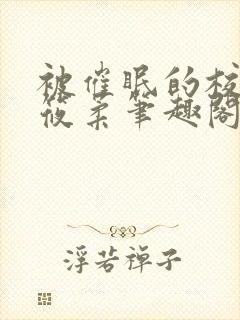 被催眠的校
筱柔笔趣阁
浮若禅子